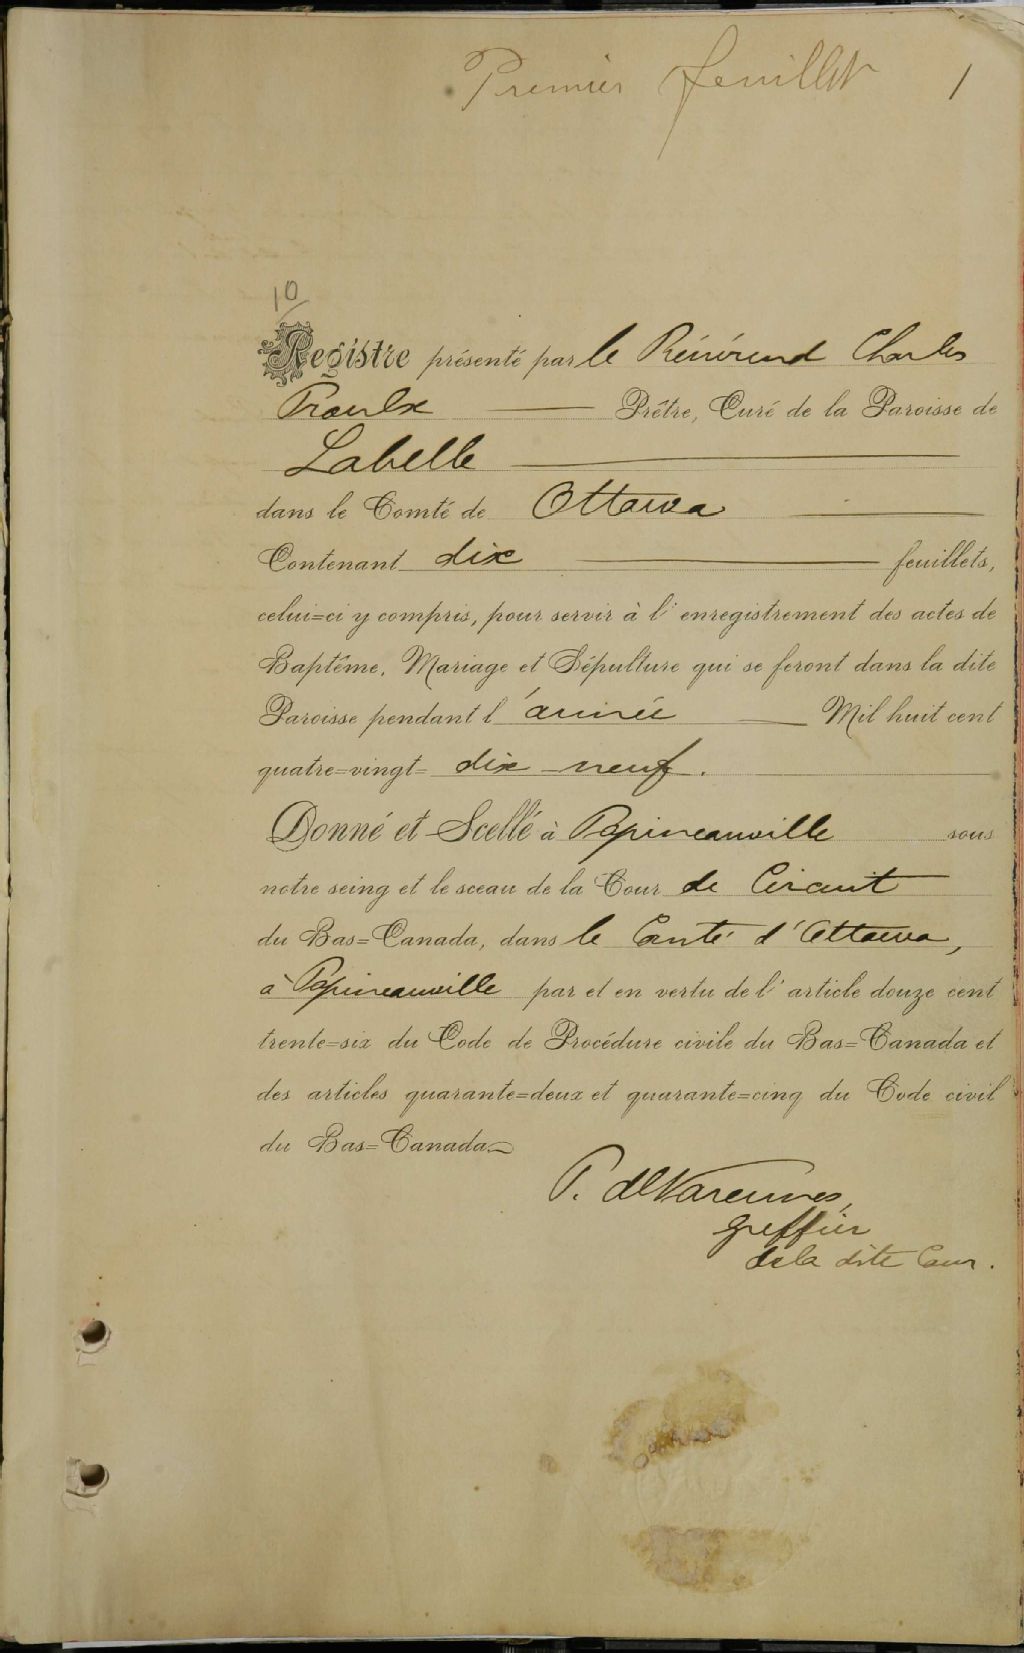 Premier feuillet 1
10
Registre présenté par le Révérend Charles
Proulx Prêtre, Curé de la Paroisse de
Labelle
dans le Comté de Ottawa
Contenant dix feuillets,
celui=ci y compris, pour servir à l'enregistrement des actes de
Baptême, Mariage et Sépulture qui se feront dans la dite
Paroisse pendant l'année Mil huit cent
quatre=vingt= dix-neuf.
Donné et Scellé à Papineauville sous
notre seing et le sceau de la Cour de Circuit
du Bas=Canada, dans le Comté d'Ottawa,
à Papineauville par et en vertu de l'article douze cent
trente=six du Code de Procédure civile du Bas=Canada et
des articles quarante=deux et quarante=cinq du Code civil
du Bas=Canada
P. deVarennes,
greffier
de la dite Cour.